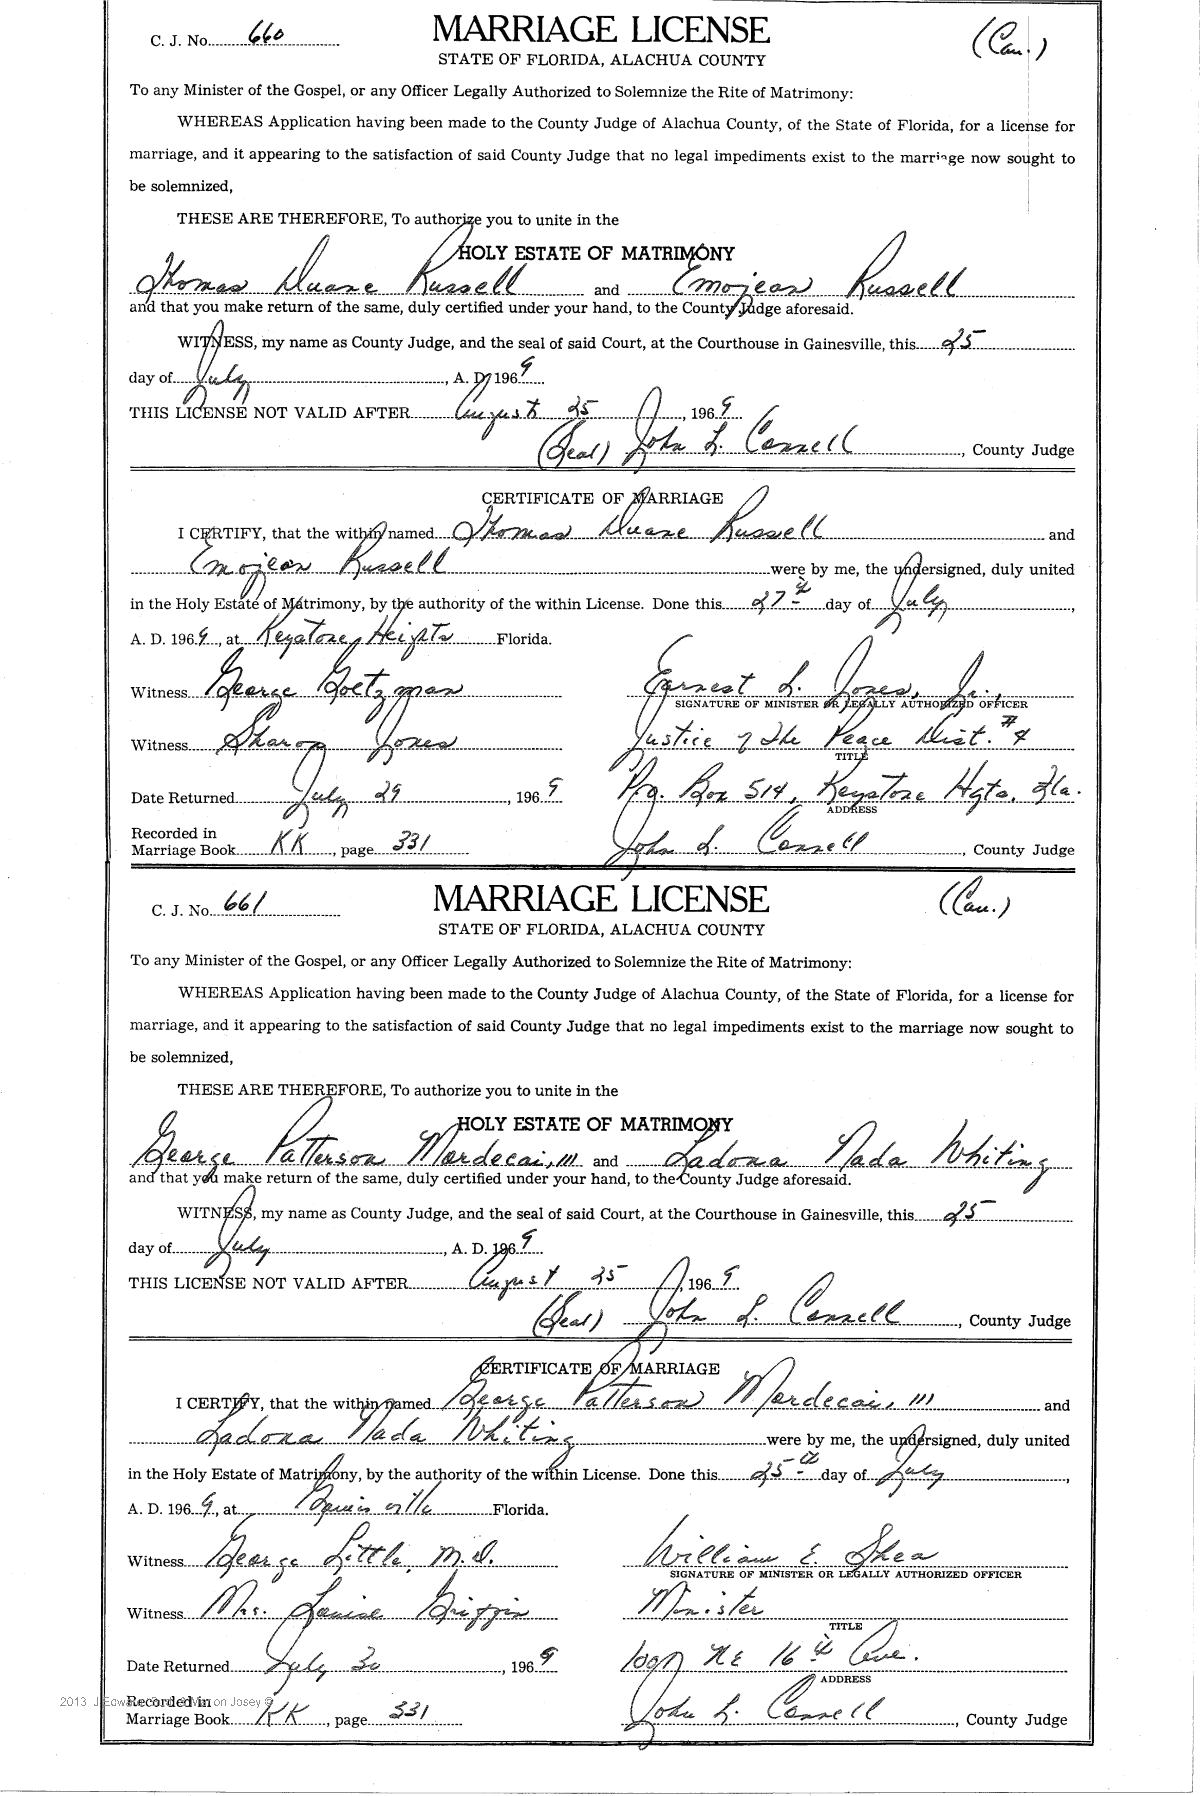 C. J. No. 660 MARRIAGE LICENSE (Cau.)
STATE OF FLORIDA, ALACHUA COUNTY
To any Minister of the Gospel, or any Officer Legally Authorized to Solemnize the Rite of Matrimony:
WHEREAS Application having been made to the County Judge of Alachua County, of the State of Florida, for a license for
marriage, and it appearing to the satisfaction of said County Judge that no legal impediments exist to the marriage now sought to
be solemnized,
THESE ARE THEREFORE, To authorize you to unite in the
HOLY ESTATE OF MATRIMONY
Thomas Duane Russell and Emojean Russell
and that you make return of the same, duly certified under your hand, to the County Judge aforesaid.
WITNESS, my name as County Judge, and the seal of said Court, at the Courthouse in Gainesville, this 25
day of July, A. D. 1969
THIS LICENSE NOT VALID AFTER August 25, 1969
(Seal) John L. Connell, County Judge
CERTIFICATE OF MARRIAGE
I CERTIFY, that the within named Thomas Duane Russell and
Emojean Russell were by me, the undersigned, duly united
in the Holy Estate of Matrimony, by the authority of the within License. Done this 27th day of July,
A. D. 1969, at Keystone Heights Florida.
Witness George Goetzman Earnest L. Jones, Jr.,
SIGNATURE OF MINISTER OR LEGALLY AUTHORIZED OFFICER
Witness Sharon Jones Justice of the Peace Dist. #4
TITLE
Date Returned July 29, 1969 P.O. Box 514, Keystone Hgts. Fla.
ADDRESS
Recorded in
Marriage Book KK, page 331 John L. Connell, County Judge
C. J. No. 661 MARRIAGE LICENSE (Cau.)
STATE OF FLORIDA, ALACHUA COUNTY
To any Minister of the Gospel, or any Officer Legally Authorized to Solemnize the Rite of Matrimony:
WHEREAS Application having been made to the County Judge of Alachua County, of the State of Florida, for a license for
marriage, and it appearing to the satisfaction of said County Judge that no legal impediments exist to the marriage now sought to
be solemnized,
THESE ARE THEREFORE, To authorize you to unite in the
HOLY ESTATE OF MATRIMONY
George Patterson Mordecai, III and Ladona Nada Whiting
and that you make return of the same, duly certified under your hand, to the County Judge aforesaid.
WITNESS, my name as County Judge, and the seal of said Court, at the Courthouse in Gainesville, this 25
day of July, A. D. 1969
THIS LICENSE NOT VALID AFTER August 25, 1969
(Seal) John L. Connell, County Judge
CERTIFICATE OF MARRIAGE
I CERTIFY, that the within named George Patterson Mordecai, III and
Ladona Nada Whiting were by me, the undersigned, duly united
in the Holy Estate of Matrimony, by the authority of the within License. Done this 25th day of July,
A. D. 1969, at Gainesville Florida.
Witness George Little, M.D. William E. Shea
SIGNATURE OF MINISTER OR LEGALLY AUTHORIZED OFFICER
Witness Mrs. Louise Griffin Minister
TITLE
Date Returned July 30, 1969 1007 NE 16th Ave.
ADDRESS
Recorded in
Marriage Book KK, page 331 John L. Connell, County Judge